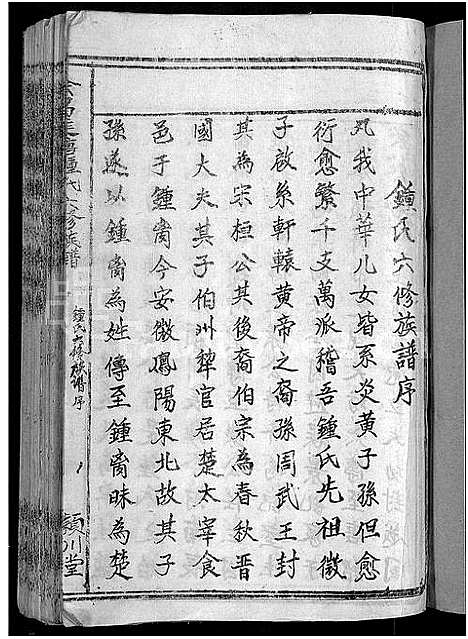 鍾氏六修族譜序
凡我中華儿女皆系炎黃子孫但愈
衍愈繁千支萬派稽吾鍾氏先祖微
子啟系軒轅黃帝之裔孫周武王封
其為宋桓公其後裔伯宗為春秋晉
國大夫其子伯州犂官居楚太宰食
邑于鍾离今安徽鳳陽東北故其子
孫遂以鍾离為姓傳至鍾离昧為楚
氏六修族譜
鍾氏六修族譜序
潁川堂